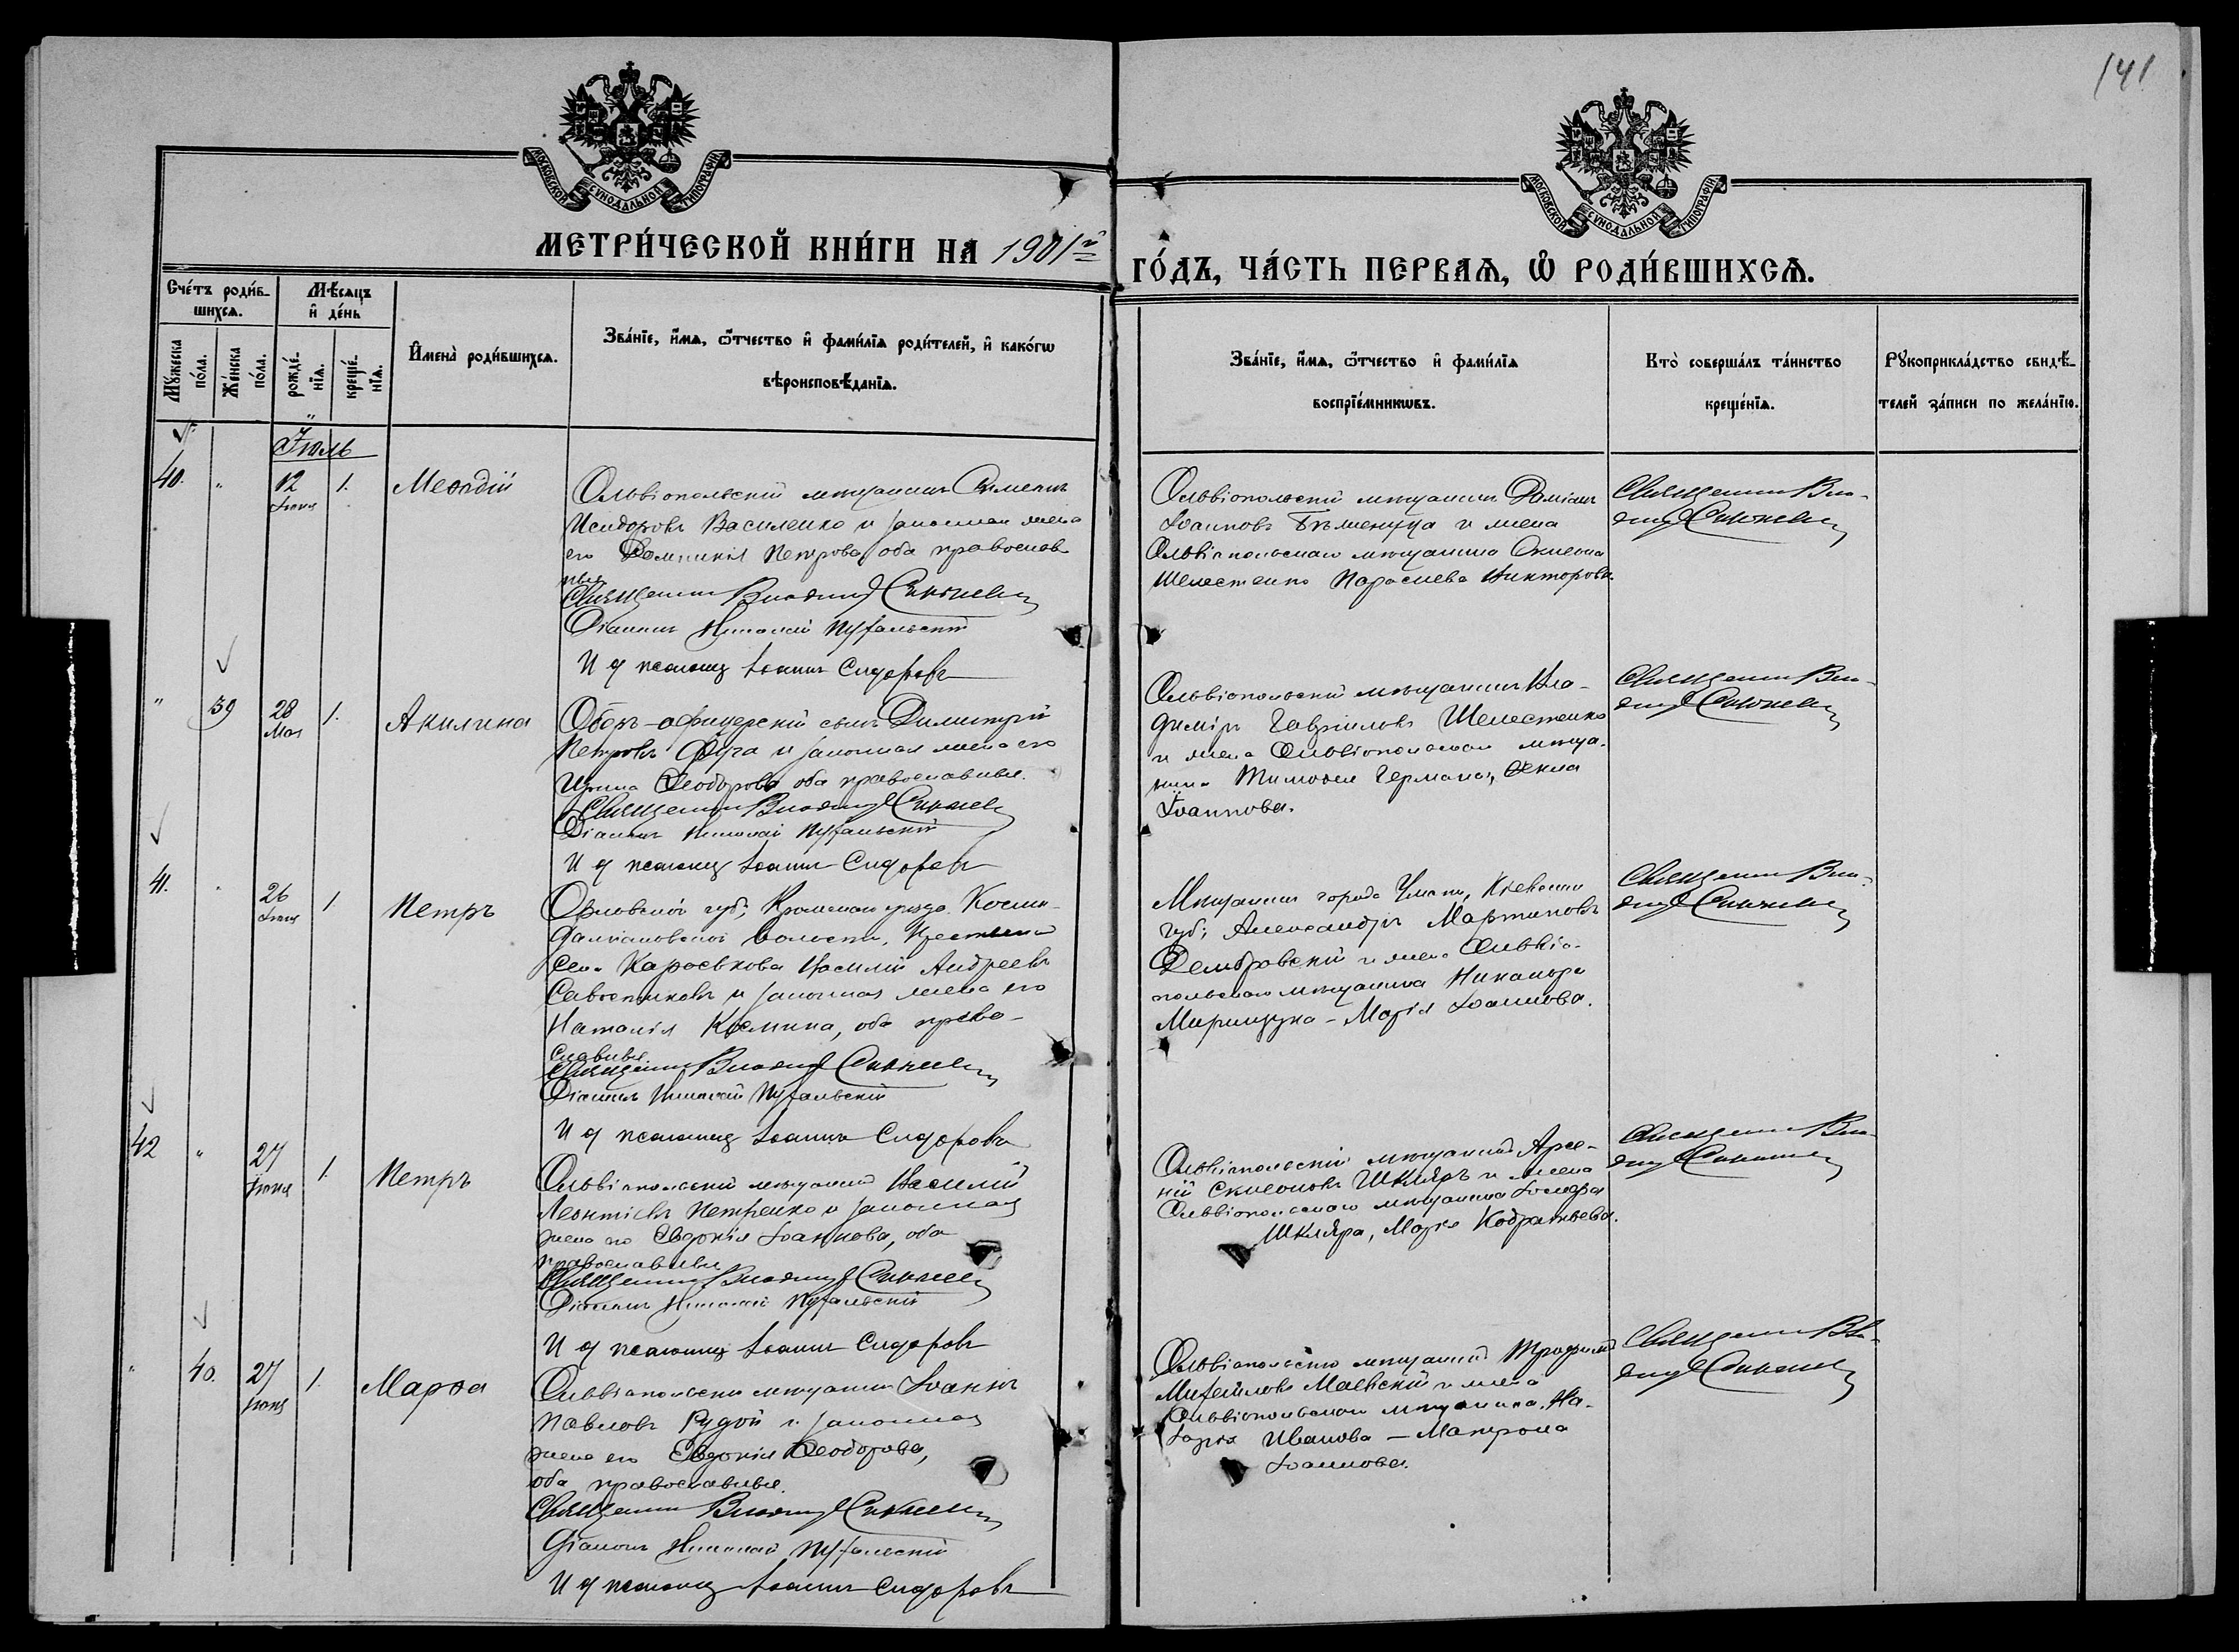 141
МОСКОВСКОЙ СѴНОДАЛЬНОЙ ТИПОГРАФІИ
МОСКОВСКОЙ СѴНОДАЛЬНОЙ ТИПОГРАФІИ
МЕТРИ́ЧЕСКОЙ КНИ́ГИ НА 1901й
ГО́ДЪ, ЧА́СТЬ ПЕРВАѦ, Ѿ РОДИ́ВШИХСѦ.
Сче́тъ роди́в-
шихсѧ.
Мѣ́сѧцъ
и де́нь
Мꙋ́жеска
по́ла.
Же́нска
по́ла.
рожде́-
нїѧ.
креще́-
нїѧ.
Имена̀ роди́вшихсѧ.
Зва́нїе, и́мѧ, ѻ́тчество и фами́лїѧ роди́телей, и како́гѡ
вѣроисповѣ́данїѧ.
Зва́нїе, и́мѧ, ѻ́тчество и фами́лїѧ
воспрїе́мникѡвъ.
Кто̀ соверша́лъ та́инство
креще́нїѧ.
Рꙋкоприкла́дство свидѣ́-
телей за́писи по жела́нїю.
Іюль
40. " 12 Іюня 1. Меѳодій
Ольвіопольскій мѣщанинъ Симеонъ
Исидоровъ Василенко и законная жена
его Домникія Петрова, оба православ-
ные
Священникъ
Діаконъ Николай
И д псаломщ Іоаннъ Сидоровъ
Ольвіопольскій мѣщанинъ Даміанъ
Іоанновъ и жена
Ольвіопольскаго мѣщанина
Шелестенко Параскева Викторова.
Священникъ Вла-
" 39 28 Мая 1. Акилина
Оберъ-офицерскій сынъ Димитрій
Петровъ и законная жена его
Ирина Ѳеодорова оба православные.
Священникъ
Діаконъ Николай
И д псаломщ Іоаннъ Сидоровъ
Ольвіопольскій мѣщанинъ Вла-
диміръ Гавріиловъ Шелестенко
и жена Ольвіопольскаго мѣща-
нина Тимоѳея Германа, Ѳекла
Іоаннова.
Священникъ Вла-
41. " 26 Іюня 1. Петръ
Орловской губ; Кромскаго уѣзда
волости, крестьянинъ
села Василій Андреевъ
и законная жена его
Наталія Космина, оба право-
славные.
Священникъ
Діаконъ Николай
И д псаломщ Іоаннъ Сидоровъ
Мѣщанинъ города Умани, Кіевской
губ; Александръ Мартиновъ
Дембровскій и жена Ольвіо-
польскаго мѣщанина Никанора
Марія Іоаннова.
Священникъ Вла-
42 " 27 Іюня 1. Петръ
Ольвіопольскій мѣщанинъ Василій
Леонтіевъ Петренко и законная
жена его Евдокія Іоаннова, оба
православные
Священникъ
Діаконъ Николай
И д псаломщ Іоаннъ Сидоровъ
Ольвіопольскій мѣщанинъ Арсе-
ній Шкляръ и жена
Ольвіопольскаго мѣщанина Іосифа
Шкляра, Марія Кодратьева.
Священникъ Вла-
" 40. 27 Іюня 1. Марѳа
Ольвіопольскій мѣщанинъ Іоаннъ
Павловъ Рудой и законная
жена его Евдокія Ѳеодорова,
оба православные.
Священникъ
Діаконъ Николай
И д псаломщ Іоаннъ Сидоровъ
Ольвіопольскій мѣщанинъ Трофимъ
Михайловъ Маевскій и жена
Ольвіопольскаго мѣщанина На-
зарія Иванова - Матрона
Іоаннова.
Священникъ Вла-